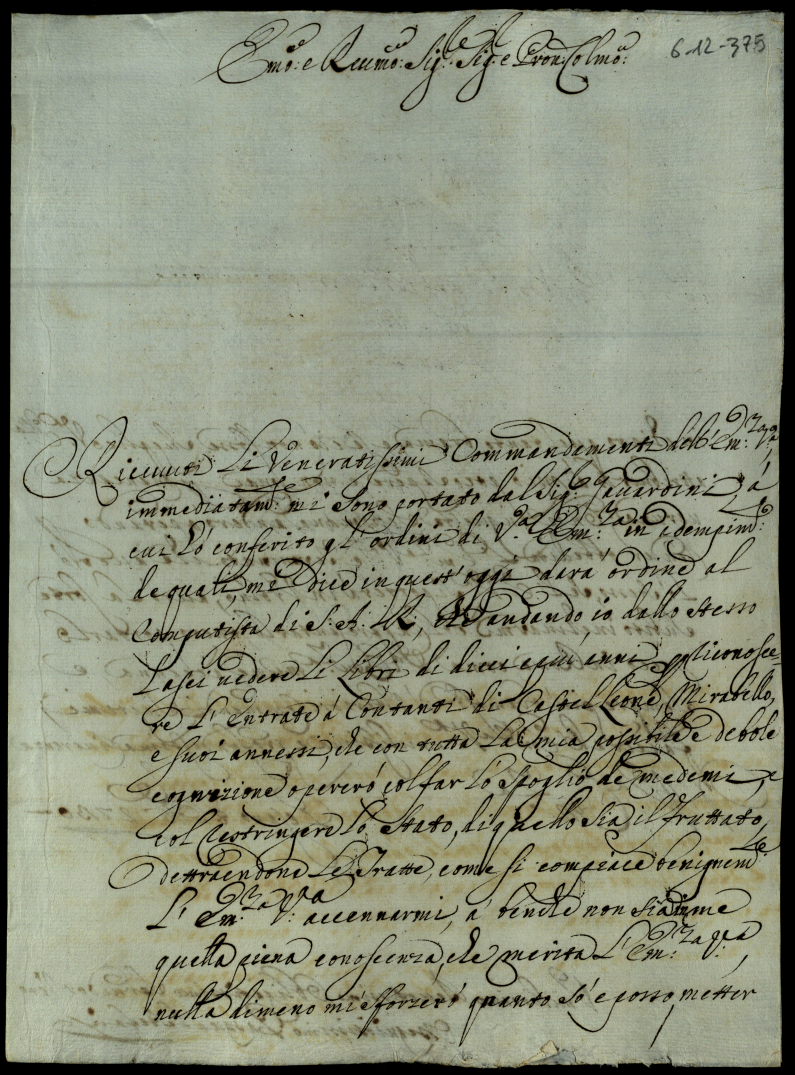 6-12-375
Emo: e Reumo: Sig:re Sig:e Pron: Colmo:
Riceuuti Li Veneratissimi Commandementi dell'Em:za V:a,
immediatam:te mi sono portato dal Sig:r Gauardini, á
cui hó conferito gl'ordini di V:a Em:za in adempim:to
de quali, mi dice in quest'oggi dara' ordine al
Computista di S: A: R, che andando io dallo stesso
Lasci uedere Li Libri di dieci anni p riconosce-
re L'Entrate á Contanti di Castel Leone, Mirabello,
e suoi annessi, che con tutta La mia possibile e debole
cognizione opereró col far Lo spoglio de medemi, e
col restringere Lo Stato, di quello sia il fruttato,
dettraendone Le Tratte, come si compiace benignem:te
L'Em:za V:a accennarmi, á benche non sia in me
quella piena conoscenza, che merita L'Em:za V:a,
nulla dimeno mi sforzeró quanto só e posso, metter